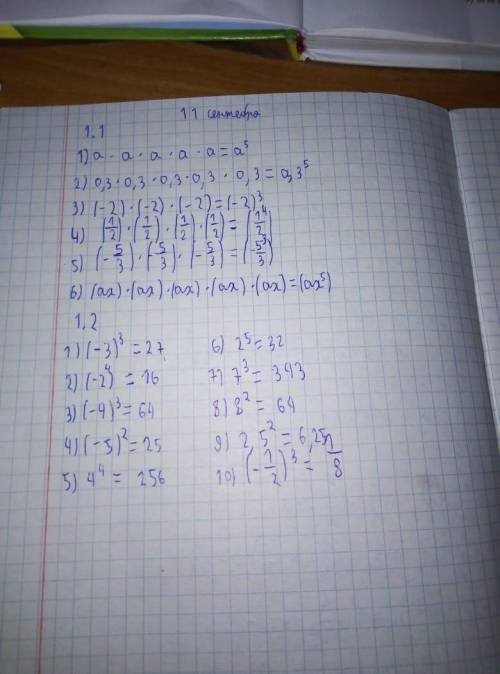 11 сентебра
1.1
1) a · a · a · a · a = a⁵
2) 0,3 · 0,3 · 0,3 · 0,3 · 0,3 = 0,3⁵
3) (-2) · (-2) · (-2) = (-2)³
4) (1/2) · (1/2) · (1/2) · (1/2) = (1/2⁴)
5) (-5/3) · (-5/3) · (-5/3) = (-5³/3)
6) (ax) · (ax) · (ax) · (ax) · (ax) = (ax⁵)
1.2
1) (-3)³ = 27
2) (-2⁴) = 16
3) (-4)³ = 64
4) (-5)² = 25
5) 4⁴ = 256
6) 2⁵ = 32
7) 7³ = 343
8) 8² = 64
9) 2,5² = 6,25
10) (-1/2)³ = 1/8